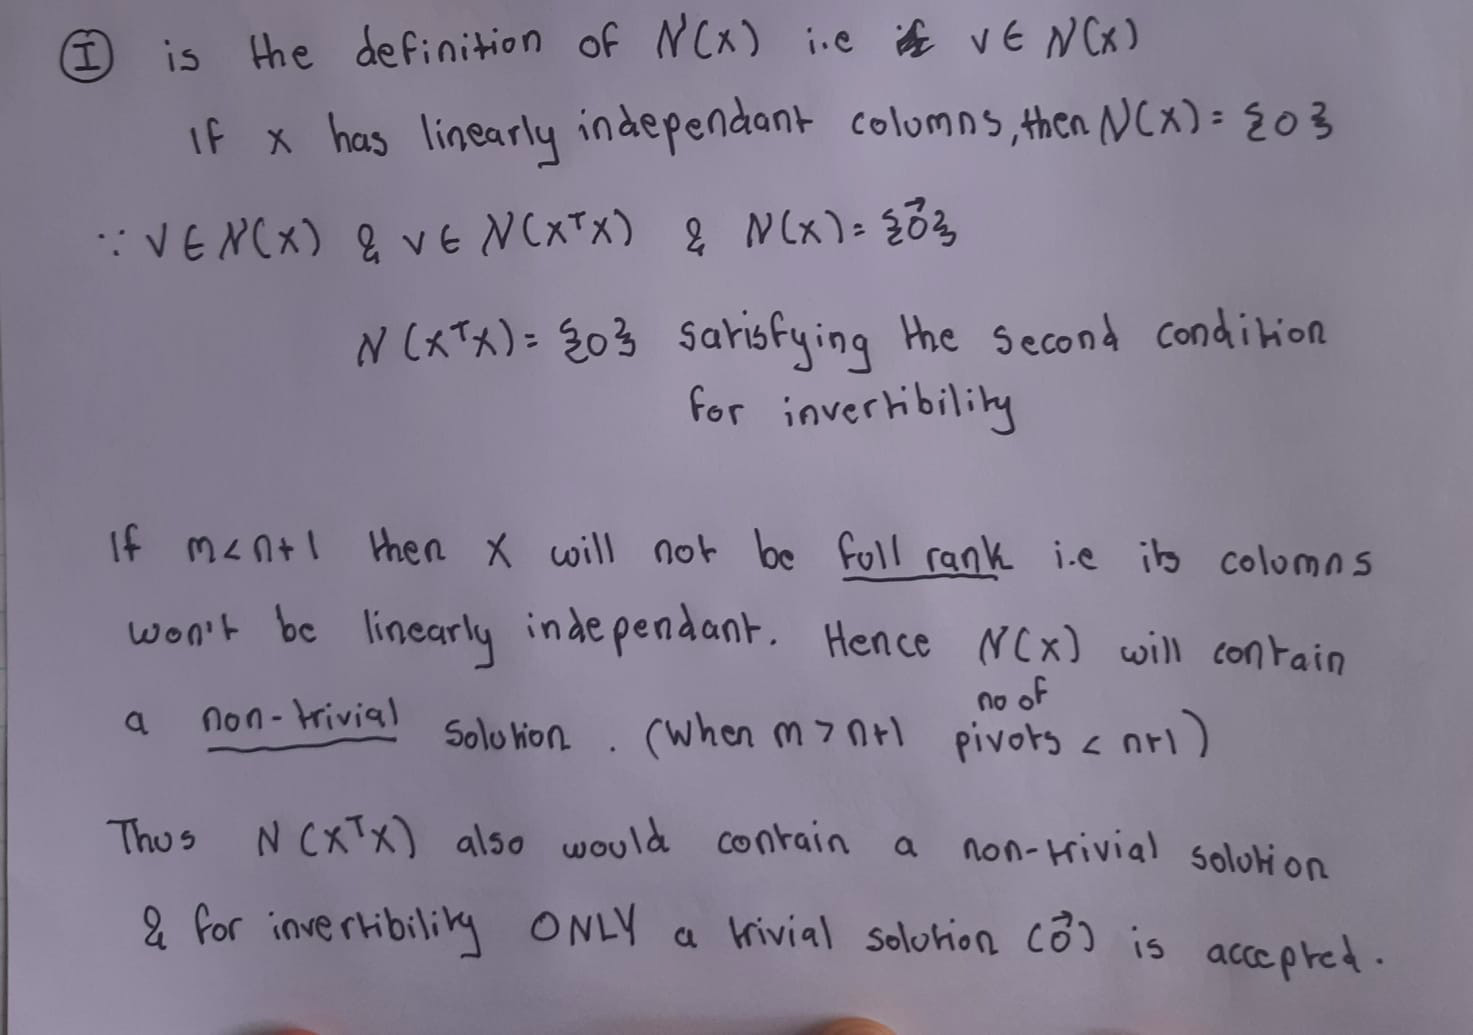 Ⓘ is the definition of N(X) i.e if v ∈ N(X)
If x has linearly independant columns, then N(X) = {0}
∵ V ∈ N(X) & v ∈ N(XᵀX) & N(X) = {0⃗}
N(XᵀX) = {0} satisfying the second condition
for invertibility
If m < n+1 then X will not be full rank i.e its columns
won't be linearly independant. Hence N(X) will contain
a non-trivial solution. (when m > n+1 no of pivots < n+1)
Thus N(XᵀX) also would contain a non-trivial solution
& for invertibility ONLY a trivial solution (0⃗) is accepted.